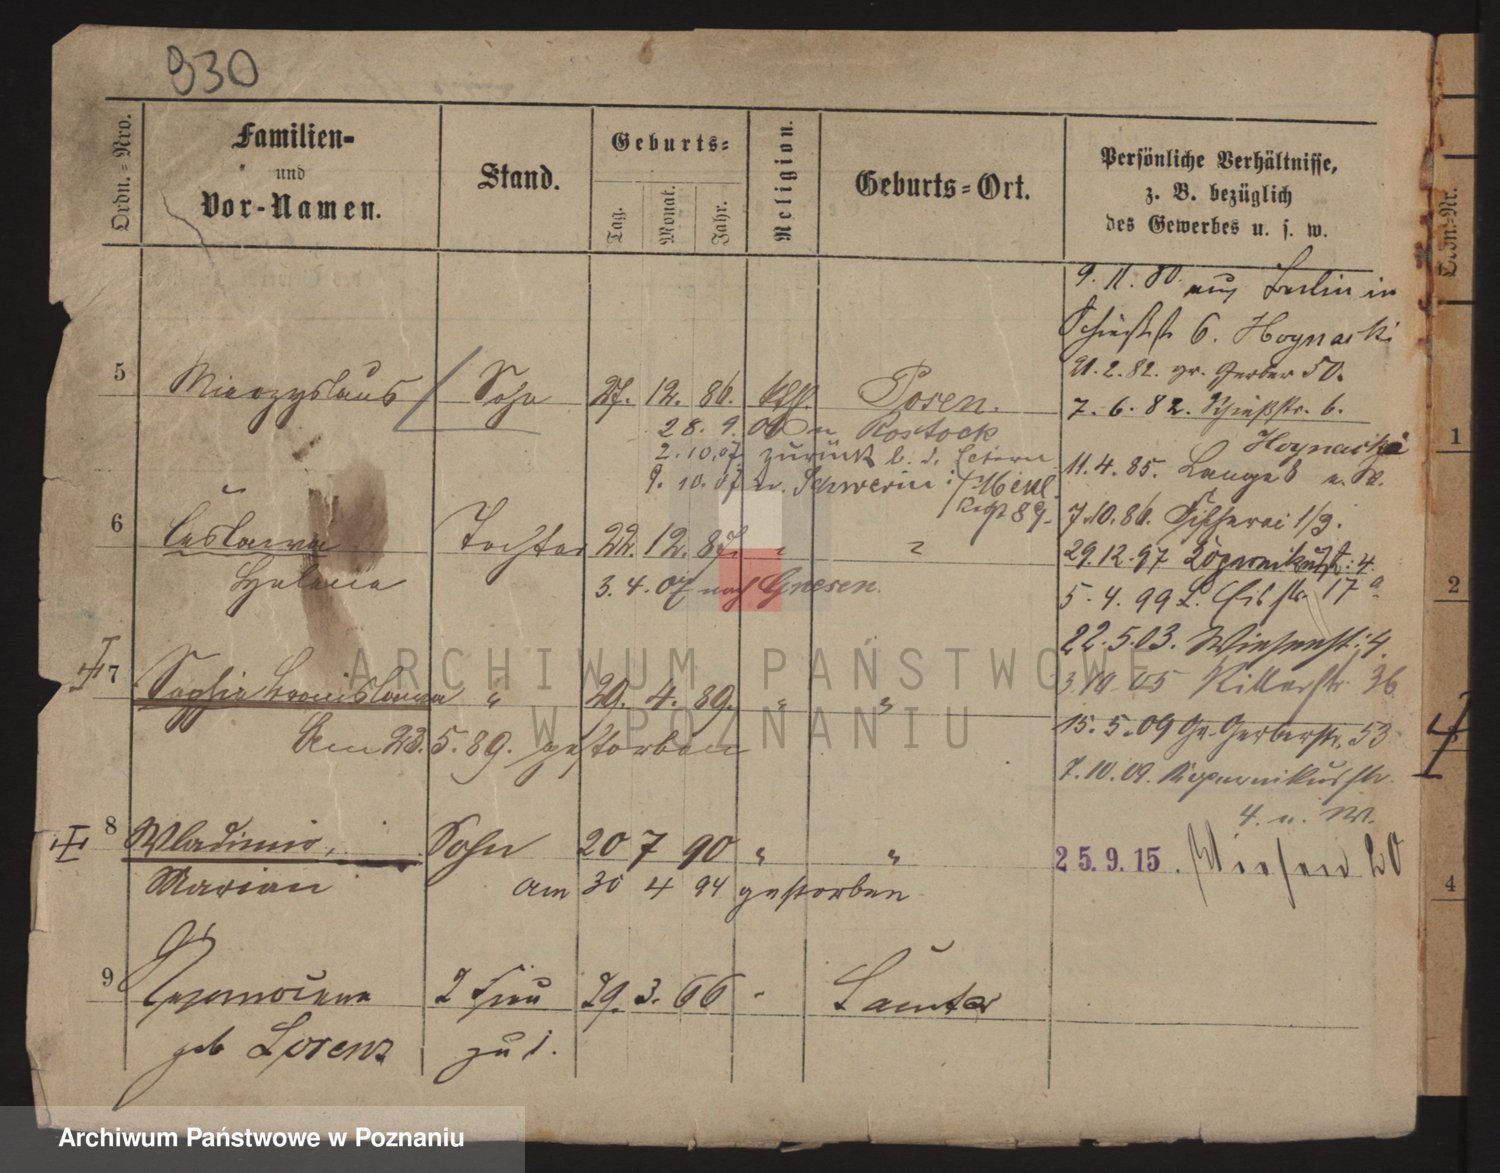 930
Ordn.=Nro.
Familien=
und
Vor-Namen.
Stand.
Geburts=
Tag.
Monat.
Jahr.
Religion.
Geburts=Ort.
Persönliche Verhältnisse,
z. B. bezüglich
des Gewerbes u. s. w.
Ordn.-Nr.
9. 11. 80. aus Berlin in
Schießstr 6. Hoynacki
21. 2. 82. gr. Gerber 50.
7. 6. 82. Schießstr. 6.
Hoynacki
11. 4. 85. Lange 8
7. 10. 86. Fischerei 1/3.
29. 12. 97 Kopernikusstr: 4.
5. 4. 99 L. 17a
22. 5. 03. Wiesenstr: 4.
05 Ritterstr 36
15. 5. 09 Gr. Gerberstr. 53
7. 10. 09. Kopernikusstr.
4. u. W.
25.9.15. Wiesen 20
5 Mieczyslaus Sohn 27. 12. 86. kth. Posen.
28. 9. 06 n Rostock
2. 10. 07 zurück b. d. Eltern
9. 10. 07 n. Schwerin i/Mekl.
Regt 89.
6 Ceslawa Tochter 22. 12. 87. " "
Helena
3. 4. 07 nach Gnesen.
7 Sophia Bronislawa " 29. 4. 89. " "
Am 23. 5. 89. gestorben
8 Wladimir, Sohn 20 7 90 " "
Marian am 30 4 94 gestorben
9 Nepomucena 2 Frau 29. 3. 66 " 
geb Lorenz zu 1.
1
2
4
ARCHIWUM PAŃSTWOWE
W POZNANIU
Archiwum Państwowe w Poznaniu